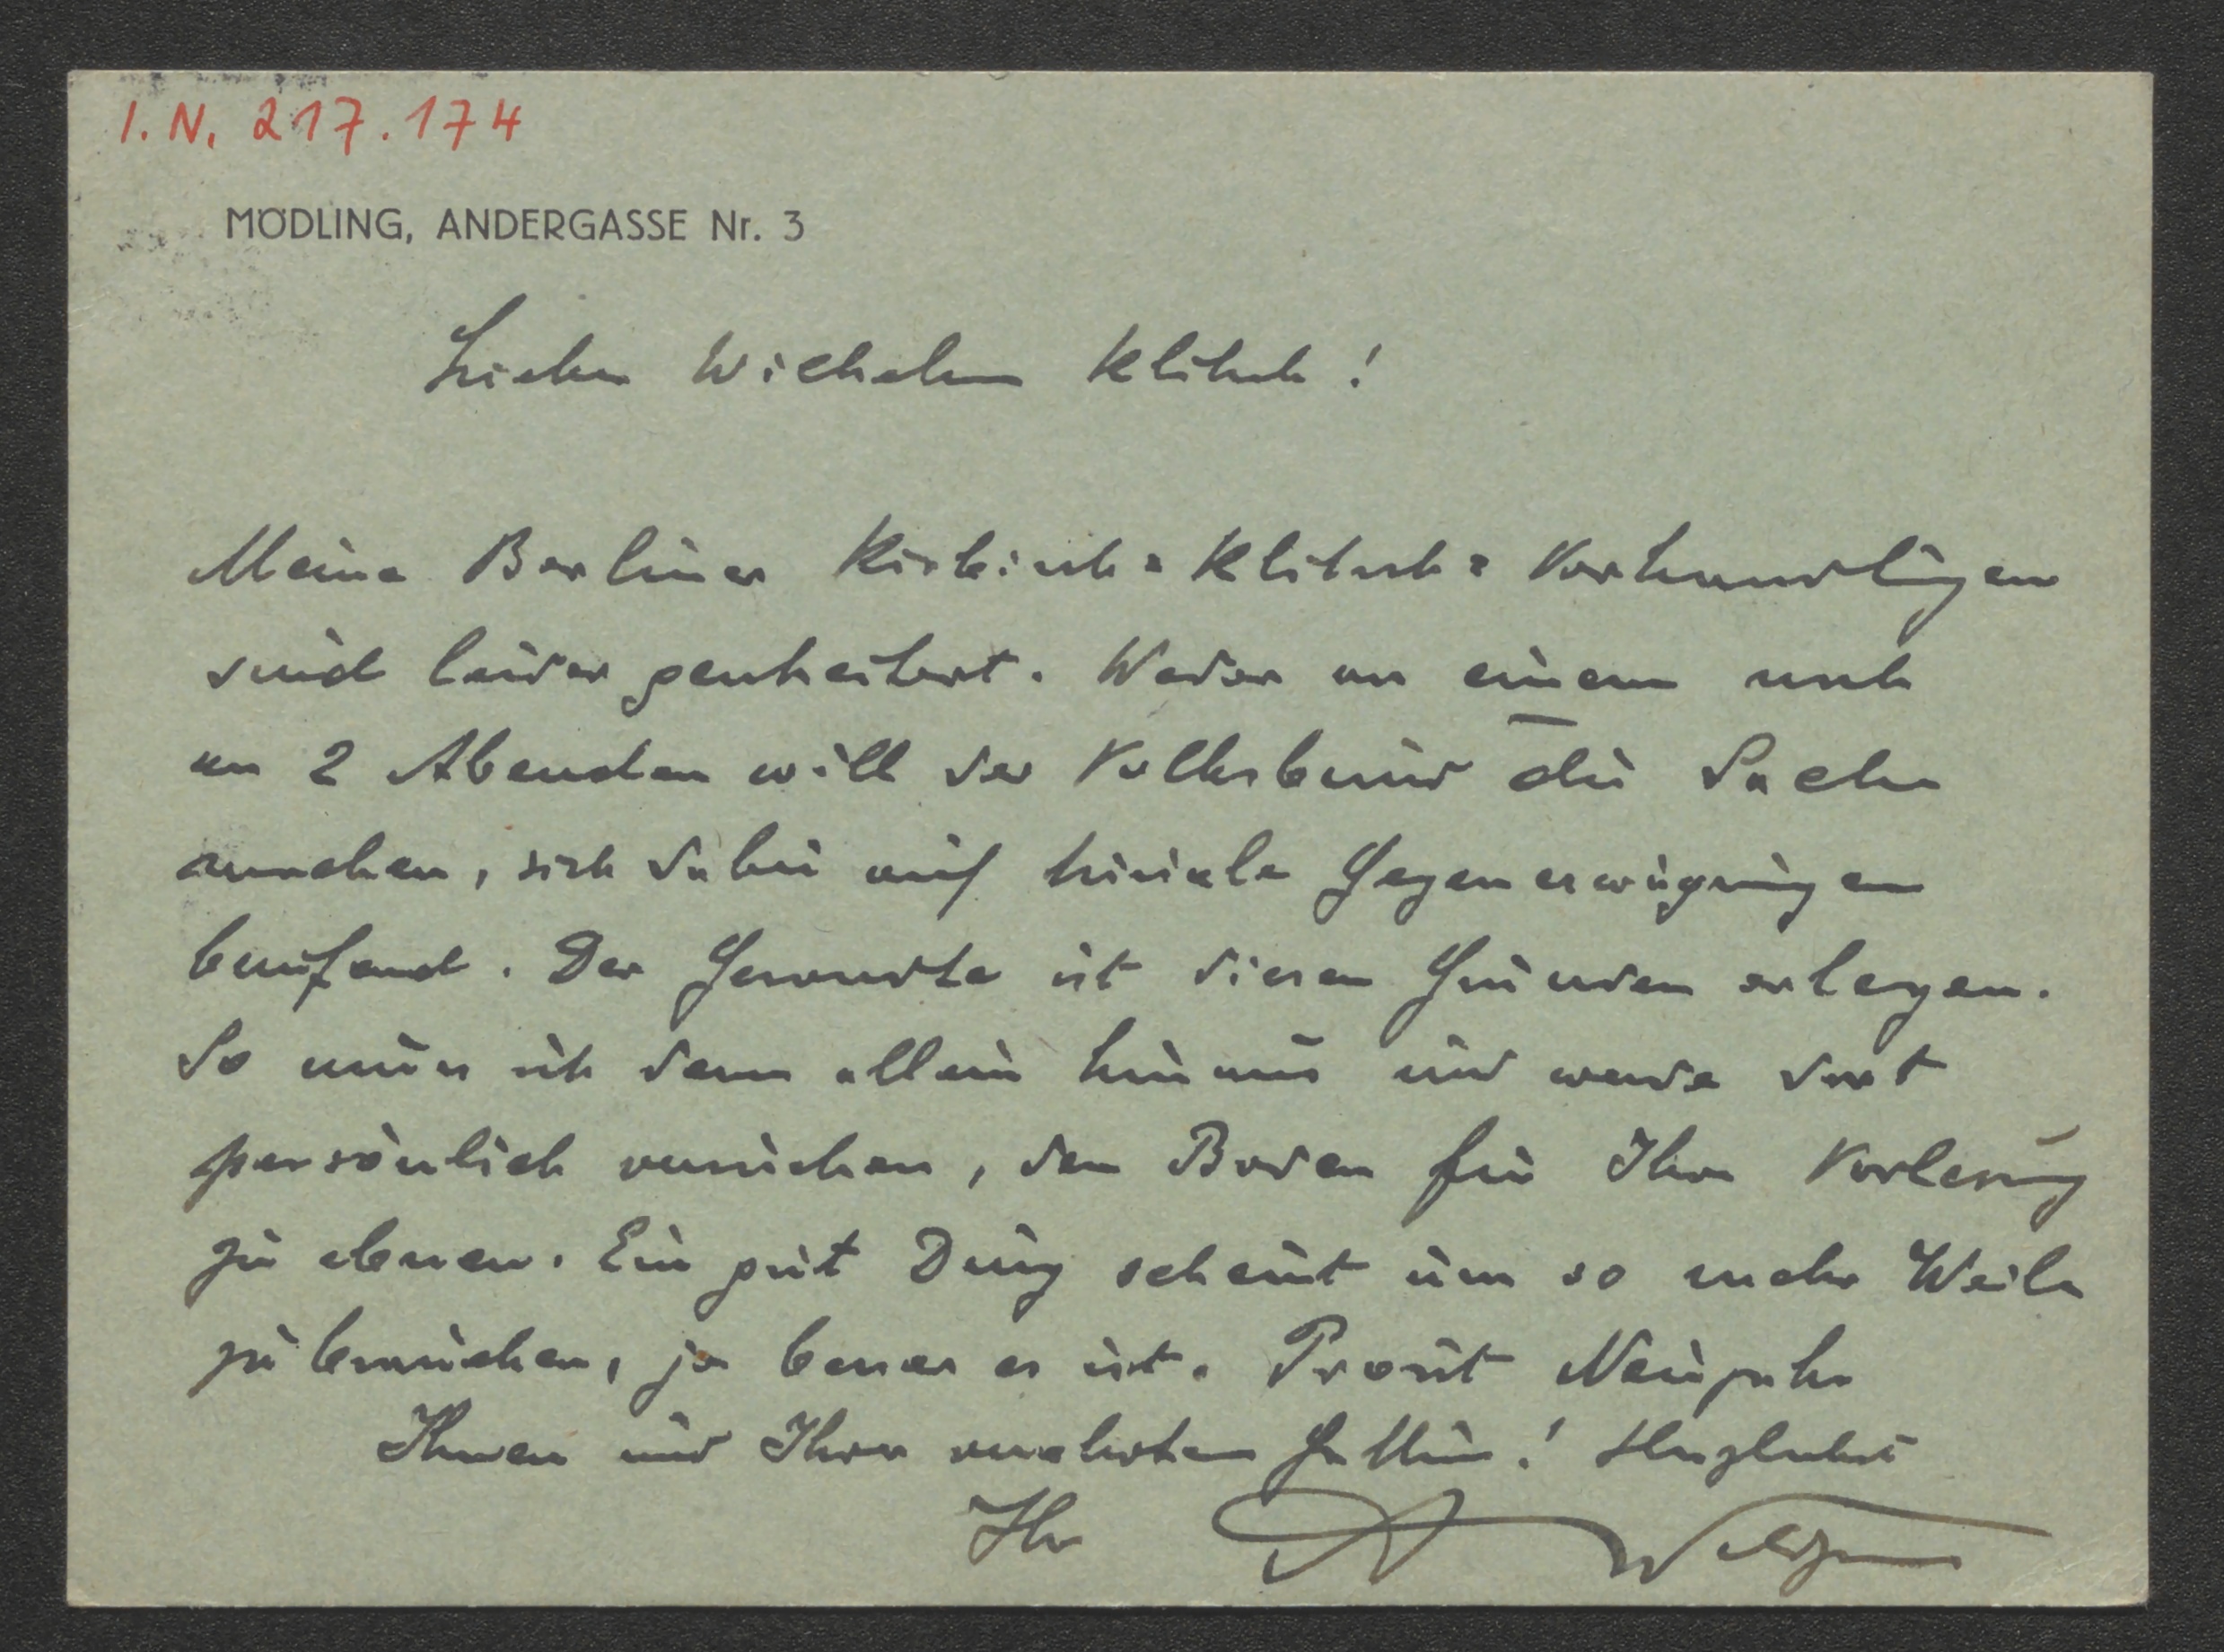 I. N. 217.174
MÖDLING, ANDERGASSE Nr. 3
Lieber Wilhelm Klitsch!
Meine Berliner Klitsch= Verhandlungen
sind leider gescheitert. Weder an einem noch
an 2 Abenden will der Volksbund die Sache
machen, sich dabei auf triviale Gegenerwägungen
berufend. Der Gesandte ist diesen Gründen erlegen.
So muss ich denn allein hinaus und werde dort
persönlich versuchen, den Boden für Ihre Vorlesung
zu ebnen. Ein gut Ding scheint um so mehr Weile
zu brauchen, je besser es ist. Prosit Neujahr
Ihnen und Ihrer verehrten Gattin! Herzlichst
Ihr A Wildgans